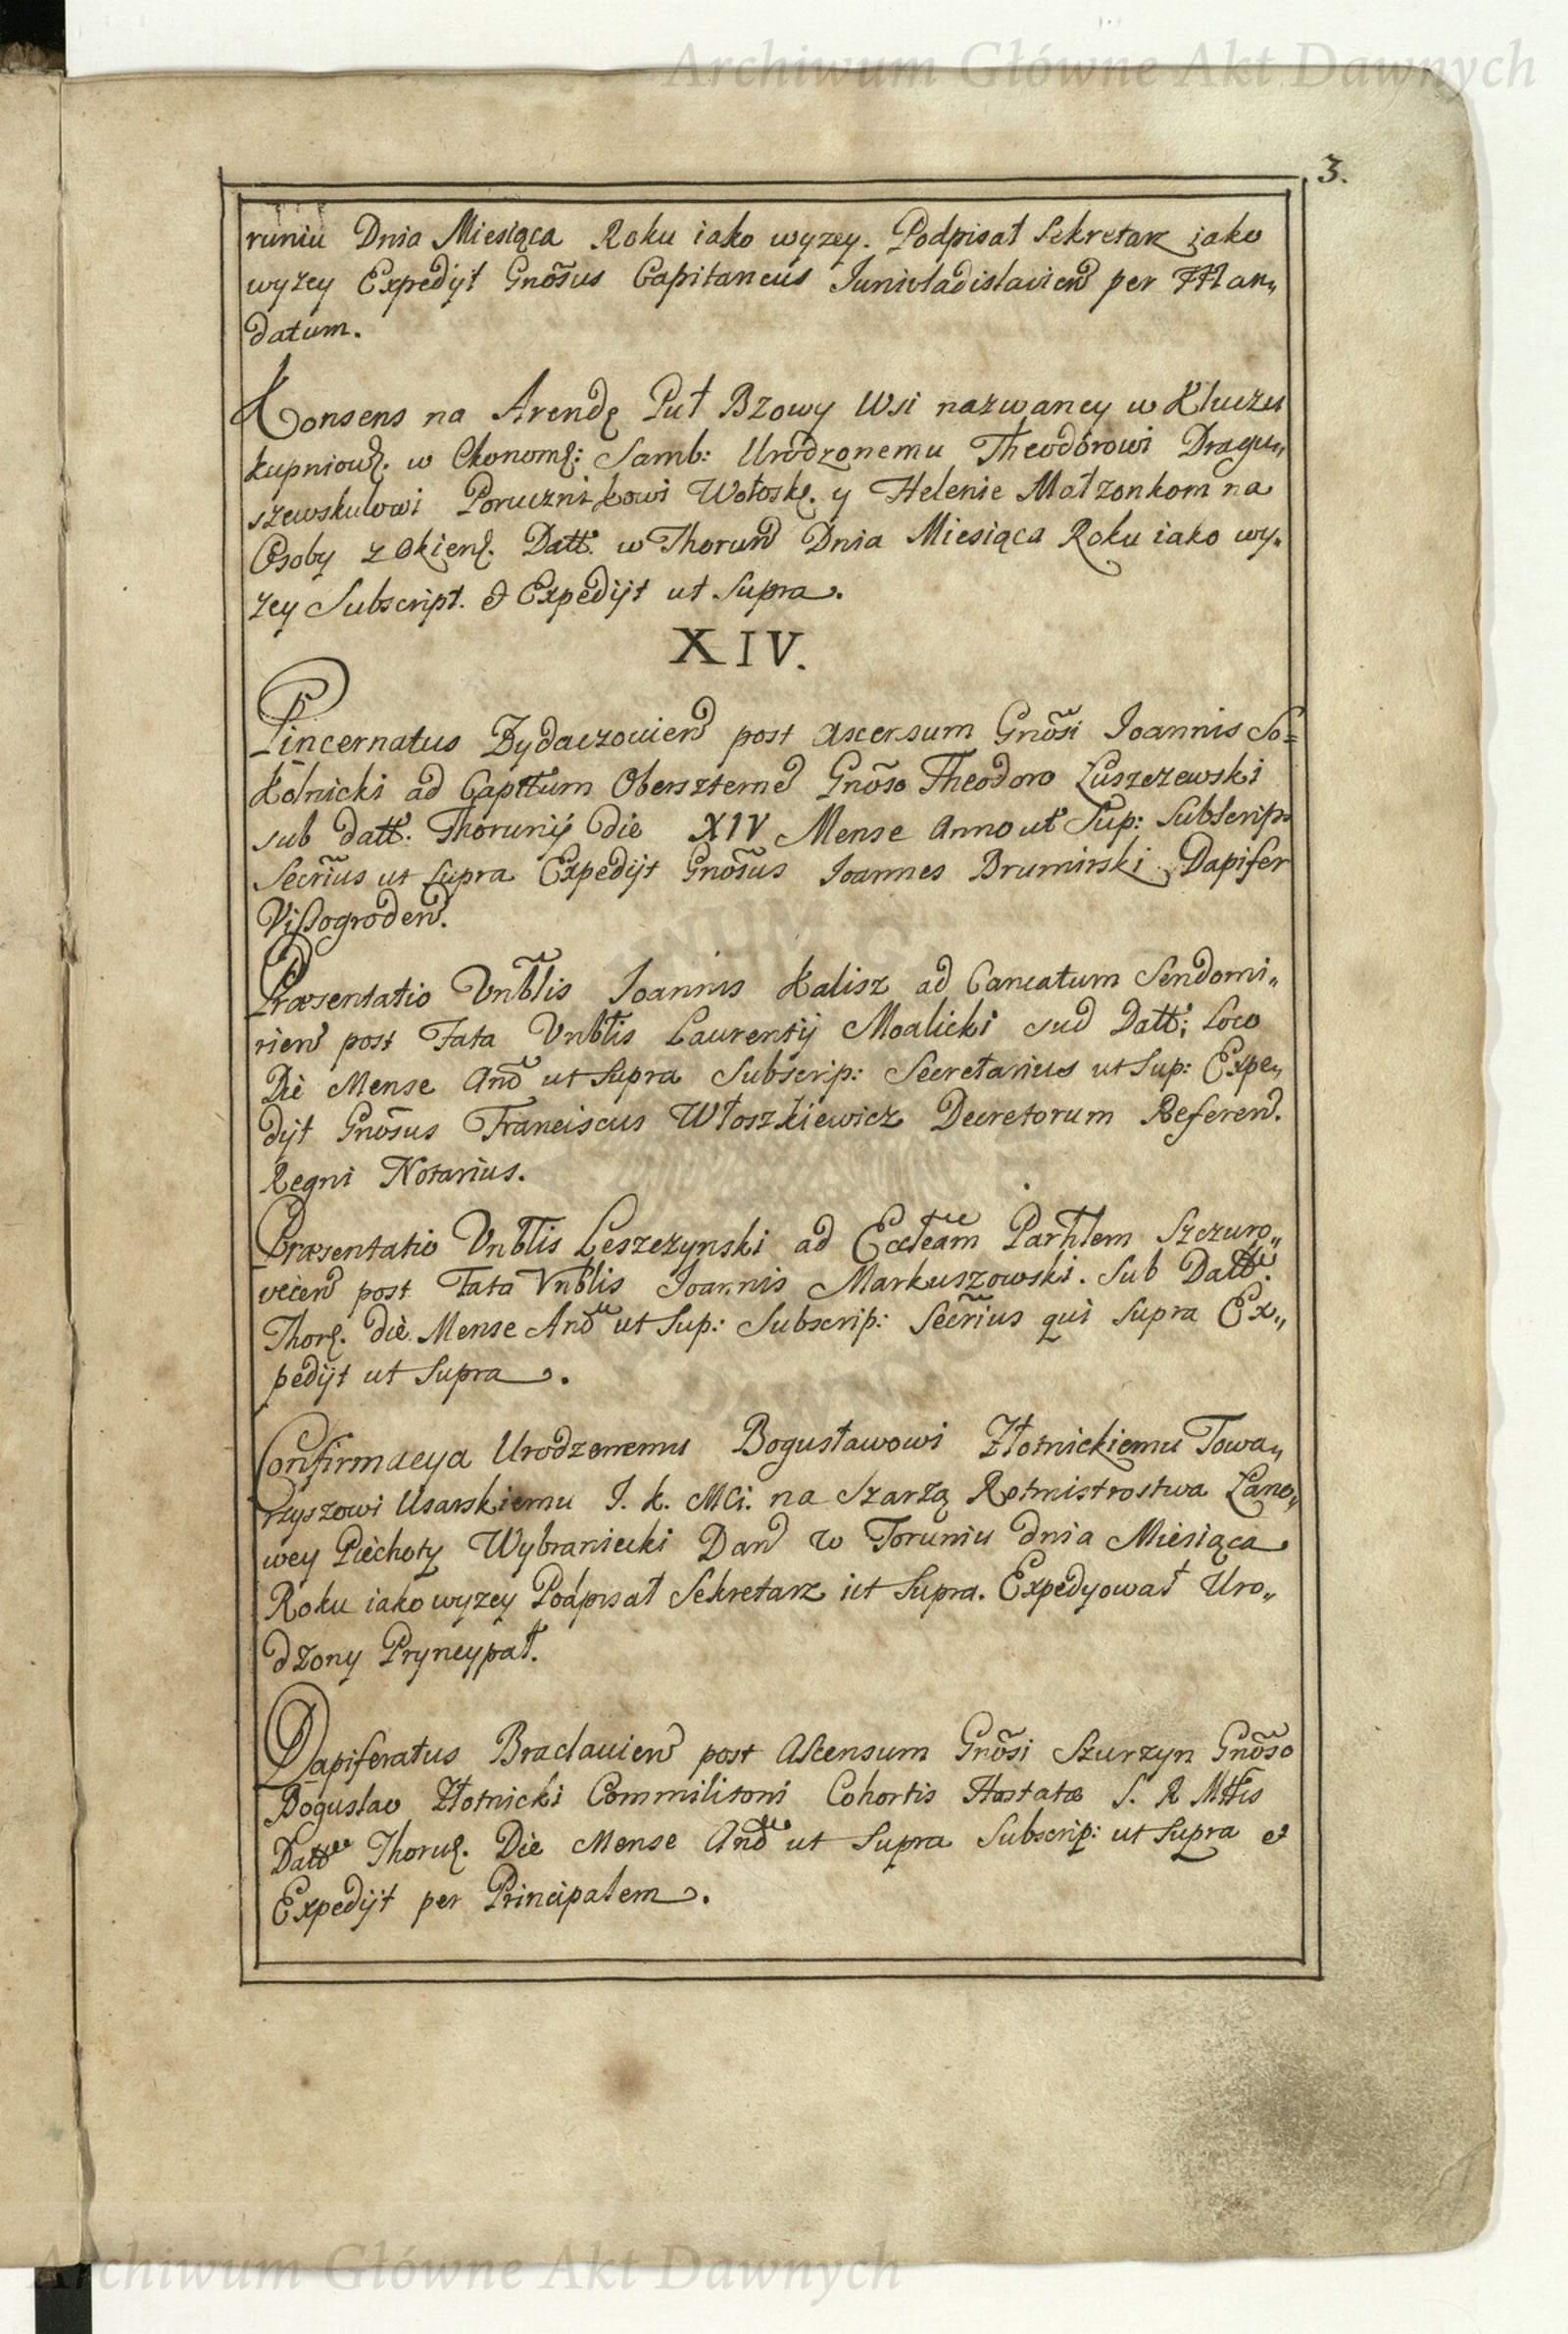 Archiwum Główne Akt Dawnych
3.
runiu Dnia Miesiąca Roku iako wyzey. Podpisał Sekretarz iako
wyzey Expedijt Gnõsus Capitaneus Junivladislavien per Man„
datum.
Konsens na Arendę Puł Bzowy Wsi nazwaney w Kluczu
kupniowſ. w Ekonomſ: Samb: Urodzonemu Theodorowi Dragu„
szewskulowi Porucznikowi Wołoskſ. y Helenie Małzonkom na
Osoby z Okienſ. Datt. w Thorun Dnia Miesiąca Roku iako wy„
zey Subscript. et Expedijt ut Supra.
XIV.
Pincernatus Zydaczovien post ascersum Gnõsi Joannis So=
kolnicki ad Capttum Oberszterne Gnõso Theodoro Łuszczewski
sub datt: Thorunij die XIV Mense Anno ut Sup: Subscrip:
Secrius ut supra Expedijt Gnõsus Joannes Brumirski Dapifer
Vissogroden.
Præsentatio Vnblis Joannis Kalisz ad Cancatum Sendomi„
rien post Fata Vnblis Laurentij Moalicki sud Datt; Loco
Die Mense Anõ ut Supra Subscrip: Secretarius ut Sup: Expe„
dijt Gnõsus Franciscus Włoszkiewicz Decretorum Referen.
Regni Notarius.
Præsentatio Vnblis Leszczynski ad Eccleam Parhlem Szczuro„
vicen post Fata Vnblis Joannis Markuszowski. Sub Datt.
Thorſ. die Mense Anõ ut Sup: Subscrip: Secrius qui Supra Ex„
pedijt ut Supra.
Confirmacya Urodzonemu Bogusławowi Złotnickiemu Towa„
rzyszowi Usarskiemu J. K. Mci. na Szarzą Rotmistrostwa Łano„
wey Piechoty Wybraniecki Dan w Toruniu dnia Miesiąca
Roku iako wyzey Podpisał Sekretarz ut Supra. Expedyował Uro„
dzony Pryncypał.
Dapiferatus Braclavien post Ascensum Gnõsi Szurzyn Gnõso
Boguslao Złotnicki Commilitoni Cohortis Hastatæ S. R Mttis
Datt Thorunſ. Die Mense Anõ ut Supra Subscrip: ut Supra et
Expedijt per Principalem.
Archiwum Główne Akt Dawnych